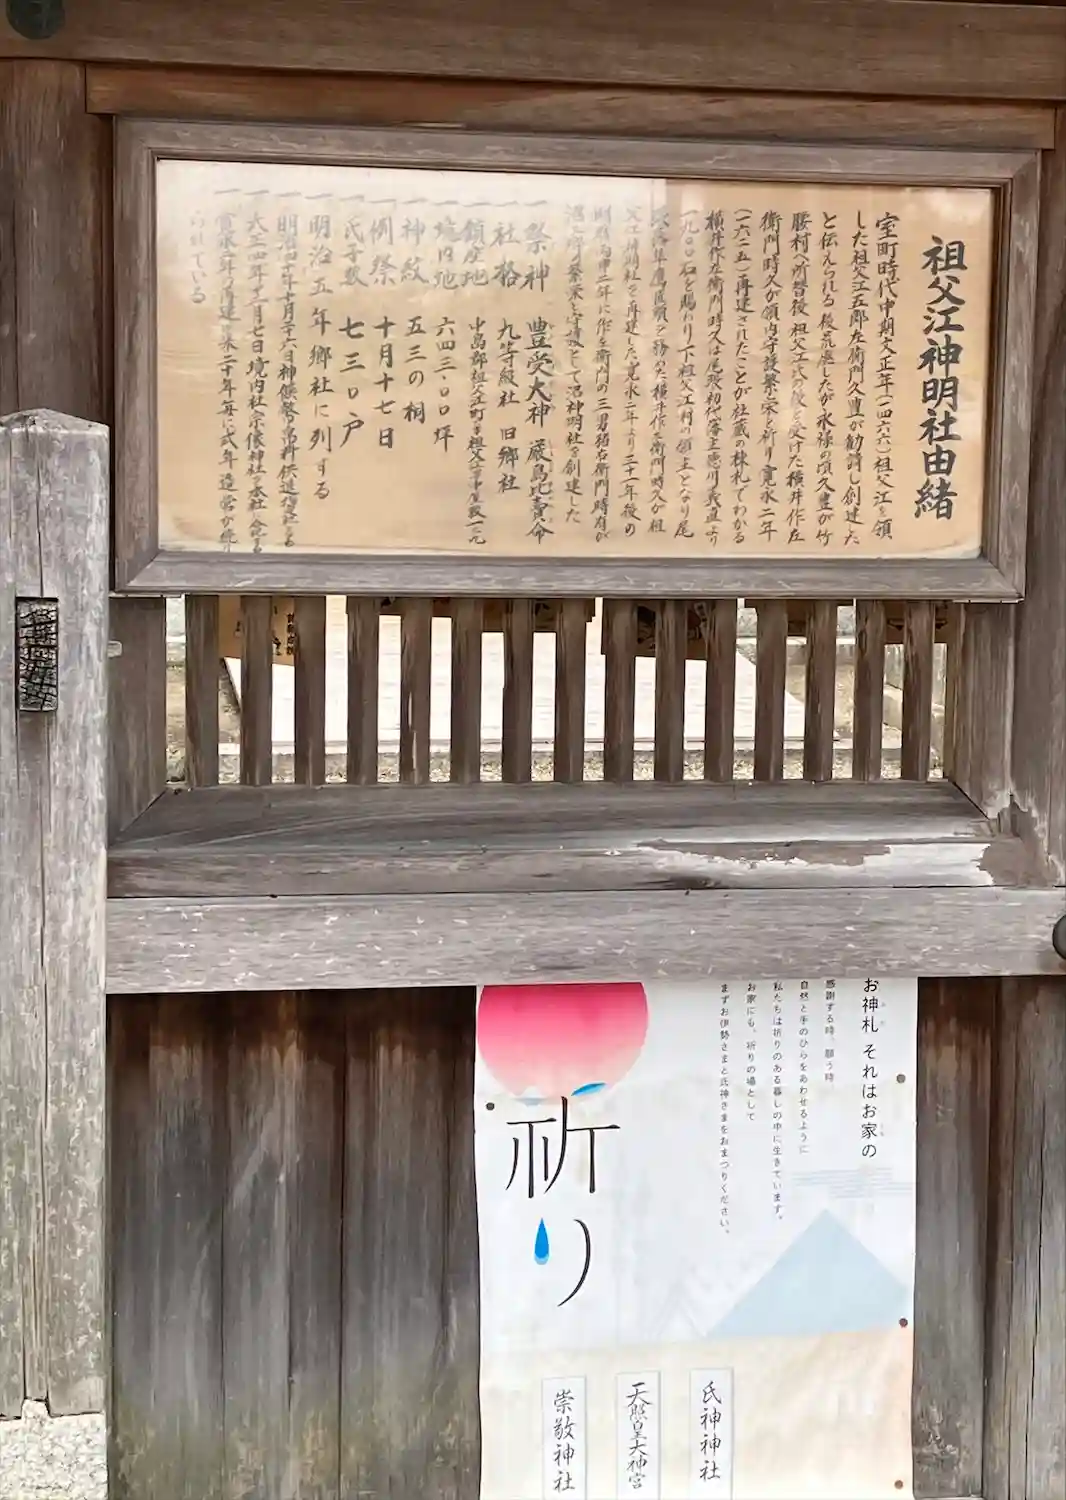 祖父江神明社由緒
室町時代中期文正年(一四六六)祖父江を領
した祖父江五郎左衛門久豊が勧請し創建した
と伝えられる 後荒廃したが永禄の頃久豊が竹
腰村へ所替後 祖父江氏の後を受けた横井作左
衛門時久が領内守護繁栄を祈り寛永二年
(一六二五)再建されたことが社蔵の棟札でわかる
横井作左衛門時久は尾張初代藩主徳川義直より
一九〇〇石を賜わり下祖父江村の領主となり尾
鷹匠頭を務めた横井作左衛門時久が祖
父江神明社を再建した寛永二年より三十一年後の
明暦 二年に作左衛門の三男 右衛門時 が
繁栄と守護として沼神明社を創建した
一 祭神 豊受大神 厳島比賣命
一 社格 九等級社 旧郷社
一 鎮座地 中島郡祖父江町
一 境内地 六四三・〇〇坪
一 神紋 五三の桐
一 例祭 十月十七日
一 氏子数 七三〇戸
一 明治五年郷社に列する
一 明治四十年十月二十六日神饌幣帛料供進指定となる
一 大正四年十二月七日境内社宗像神社を本社に合祀する
一 寛永二年の再建以来二十年毎に式年造営が続け
られている
お神札 それはお家の
感謝する時、願う時
自然と手のひらをあわせるように
私たちは祈りのある暮しの中に生きています。
お家にも、祈りの場として
まずお伊勢さまと氏神さまをおまつりください。
祈り
氏神神社
天照皇大神宮
崇敬神社